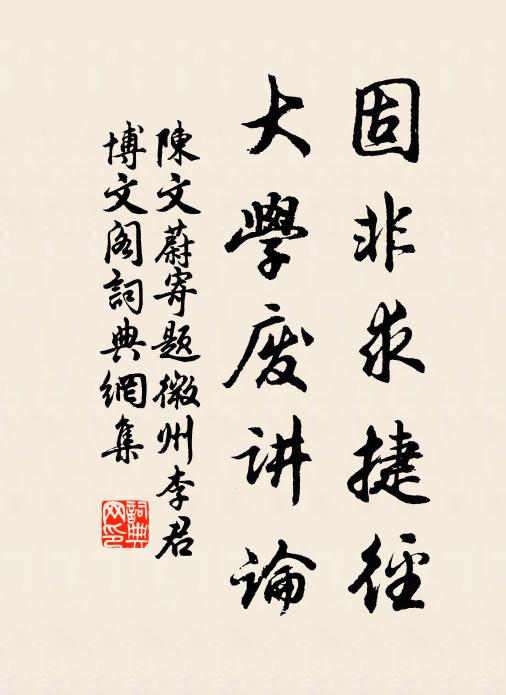 固非求捷徑
大學废讲論
陳文蔚寄題徽州李君
博文阁詞典網集
詞典网印